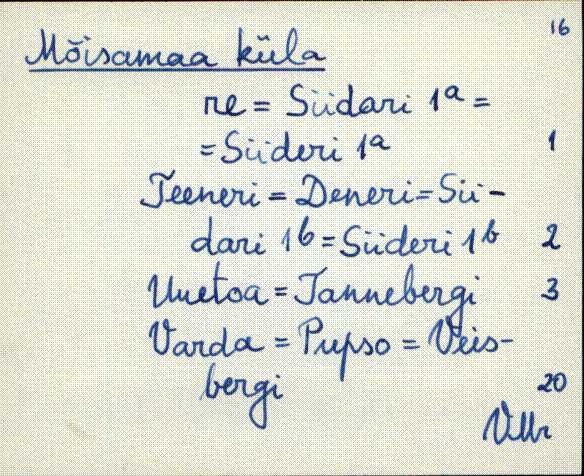 16
Mõisamaa küla
re = Siidari 1a =
= Siideri 1a 1
Teeneri = Deneri = Sii-
dari 1b = Siideri 1b 2
Uuetoa = Tannebergi 3
Varda = Pupso = Veis-
bergi 20